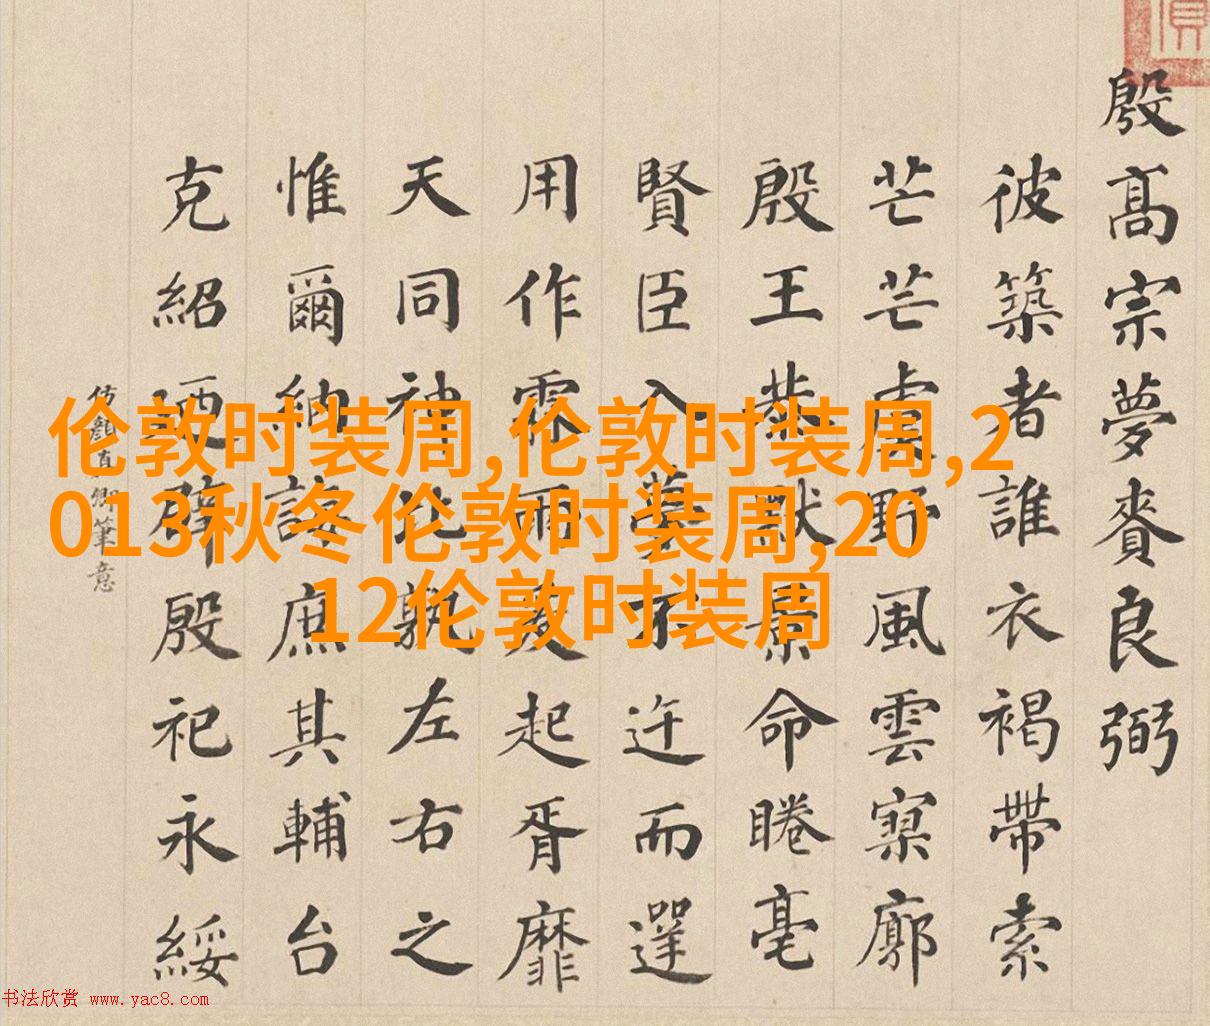 殷高宗夢賚良弼
彼築者誰衣褐帶索
芒芒虞野風雲寥廓
殷王恭默景命睠亳
賢臣入夢不迕而遌
用作霖雨爰起胥靡
天同神孰左右之
惟爾納誨庶其輔台
克紹迺辟殷祀永綏
仿顏真卿筆意
伦敦时装周,伦敦时装周,2
013秋冬伦敦时装周,20
12伦敦时装周
书法欣赏 www.yac8.com